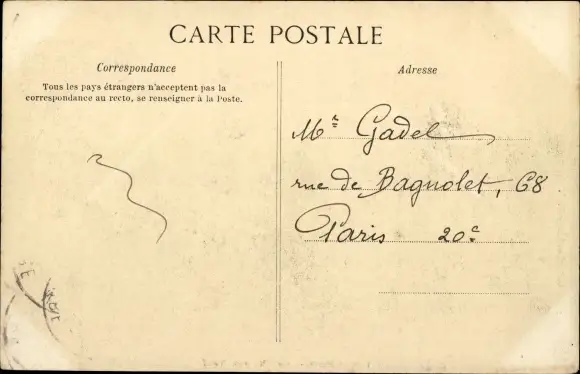 CARTE POSTALE
Correspondance
Tous les pays étrangers n'acceptent pas la
correspondance au recto, se renseigner à la Poste.
Adresse
Mr Gadel
rue de Bagnolet, 68
Paris 20e